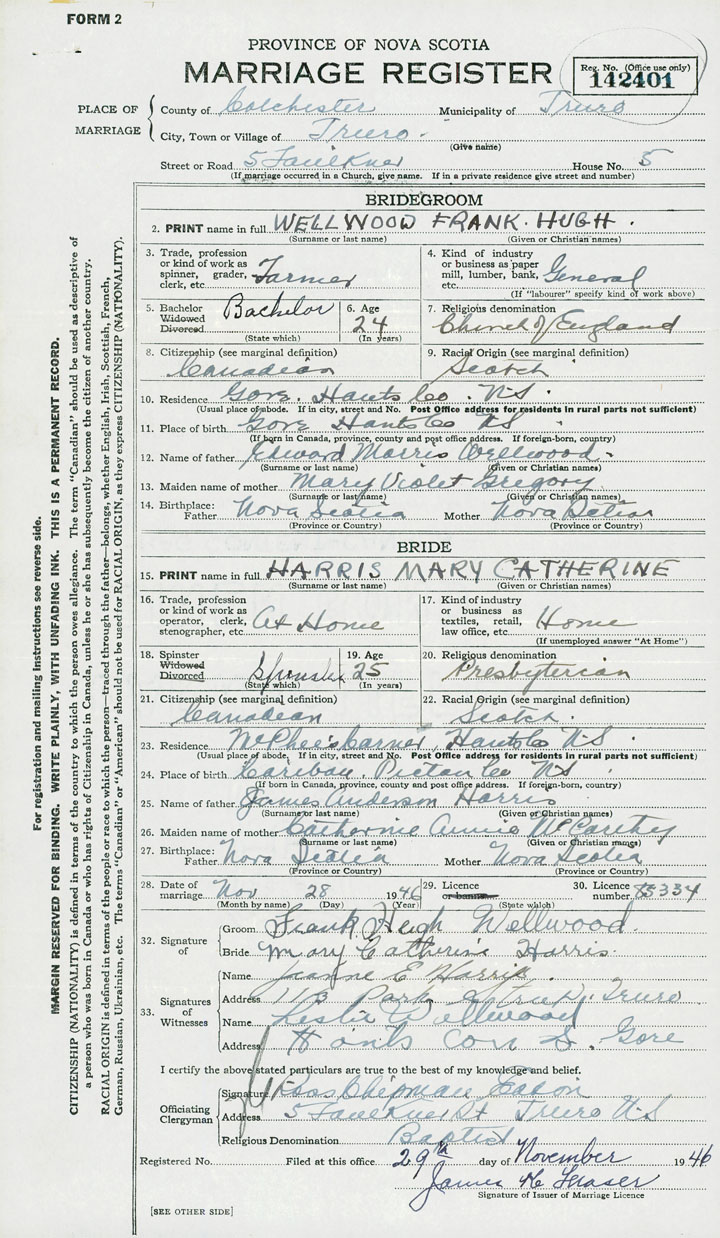 FORM 2
PROVINCE OF NOVA SCOTIA
MARRIAGE REGISTER
Reg. No. (Office use only)
142401
PLACE OF MARRIAGE
County of Colchester Municipality of Truro
City, Town or Village of Truro.
(Give name)
Street or Road 5 Faulkner House No. 5
(If marriage occurred in a Church, give name. If in a private residence give street and number)
BRIDEGROOM
2. PRINT name in full WELLWOOD FRANK HUGH.
(Surname or last name) (Given or Christian names)
3. Trade, profession or kind of work as spinner, grader, clerk, etc. Farmer
4. Kind of industry or business as paper mill, lumber, bank, etc. General
(If "labourer" specify kind of work above)
5. Bachelor Widowed Divorced Bachelor
(State which)
6. Age 24
(In years)
7. Religious denomination
Church of England
8. Citizenship (see marginal definition)
Canadian
9. Racial Origin (see marginal definition)
Scotch
10. Residence Gore. Hants Co. NS.
(Usual place of abode. If in city, street and No. Post Office address for residents in rural parts not sufficient)
11. Place of birth Gore Hants Co NS.
(If born in Canada, province, county and post office address. If foreign-born, country)
12. Name of father Edward Morris Wellwood.
(Surname or last name) (Given or Christian names)
13. Maiden name of mother Mary Violet Gregory
(Surname or last name) (Given or Christian names)
14. Birthplace: Father Nova Scotia Mother Nova Scotia
(Province or Country) (Province or Country)
BRIDE
15. PRINT name in full HARRIS MARY CATHERINE
(Surname or last name) (Given or Christian names)
16. Trade, profession or kind of work as operator, clerk, stenographer, etc. At Home
17. Kind of industry or business as textiles, retail, law office, etc. Home
(If unemployed answer "At Home")
18. Spinster Widowed Divorced Spinster
(State which)
19. Age 25
(In years)
20. Religious denomination
Presbyterian
21. Citizenship (see marginal definition)
Canadian
22. Racial Origin (see marginal definition)
Scotch.
23. Residence Hants Co NS.
(Usual place of abode. If in city, street and No. Post Office address for residents in rural parts not sufficient)
24. Place of birth Caribou. Pictou Co NS
(If born in Canada, province, county and post office address. If foreign-born, country)
25. Name of father James Anderson Harris
(Surname or last name) (Given or Christian names)
26. Maiden name of mother Catherine Annie McCarthy
(Surname or last name) (Given or Christian names)
27. Birthplace: Father Nova Scotia Mother Nova Scotia
(Province or Country) (Province or Country)
28. Date of marriage Nov 28 1946
(Month by name) (Day) (Year)
29. Licence or banns
(State which)
30. Licence number 85334
32. Signature of
Groom Frank Hugh Wellwood.
Bride Mary Catherine Harris.
33. Signatures of Witnesses
Name Jeanne E Harris.
Address 113 Park Truro
Name Leslie Wellwood
Address Hants Gore
I certify the above stated particulars are true to the best of my knowledge and belief.
Officiating Clergyman
Signature Ross Chipman Eaton
Address 5 Faulkner St Truro NS
Religious Denomination Baptist
Registered No. Filed at this office 29th day of November 1946
James
Signature of Issuer of Marriage Licence
[SEE OTHER SIDE]
For registration and mailing instructions see reverse side.
MARGIN RESERVED FOR BINDING. WRITE PLAINLY, WITH UNFADING INK. THIS IS A PERMANENT RECORD.
CITIZENSHIP (NATIONALITY) is defined in terms of the country to which the person owes allegiance. The term "Canadian" should be used as descriptive of
a person who was born in Canada or who has rights of Citizenship in Canada, unless he or she has subsequently become the citizen of another country.
RACIAL ORIGIN is defined in terms of the people or race to which the person—traced through the father—belongs, whether English, Irish, Scottish, French,
German, Russian, Ukrainian, etc. The terms "Canadian" or "American" should not be used for RACIAL ORIGIN, as they express CITIZENSHIP (NATIONALITY).